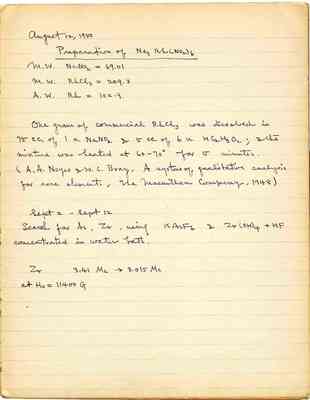 August 12, 1950
Preparation of Na3 Rh(NO2)6
M.W. NaNO2 = 69.01
M.W. RhCl3 = 209.3
A.W. Rh = 102.9
One gram of commercial RhCl3 was dissolved in
cc of 1 n NaNO2 & 5 cc of 6 n HC2H3O2; & the
mixture was heated at 60-70° for 5 minutes.
(A.A. Noyes & W.C. Bray, A system of qualitative analysis
for rare elements, The Macmillan Company, 1948)
Sept 2 - Sept 12
Search for As, Zr, using KAsF6 & Zr(NH4) + HF
concentrated in water bath.
Zr 3.61 Mc → 3.015 Mc
at Ho = 11400 G